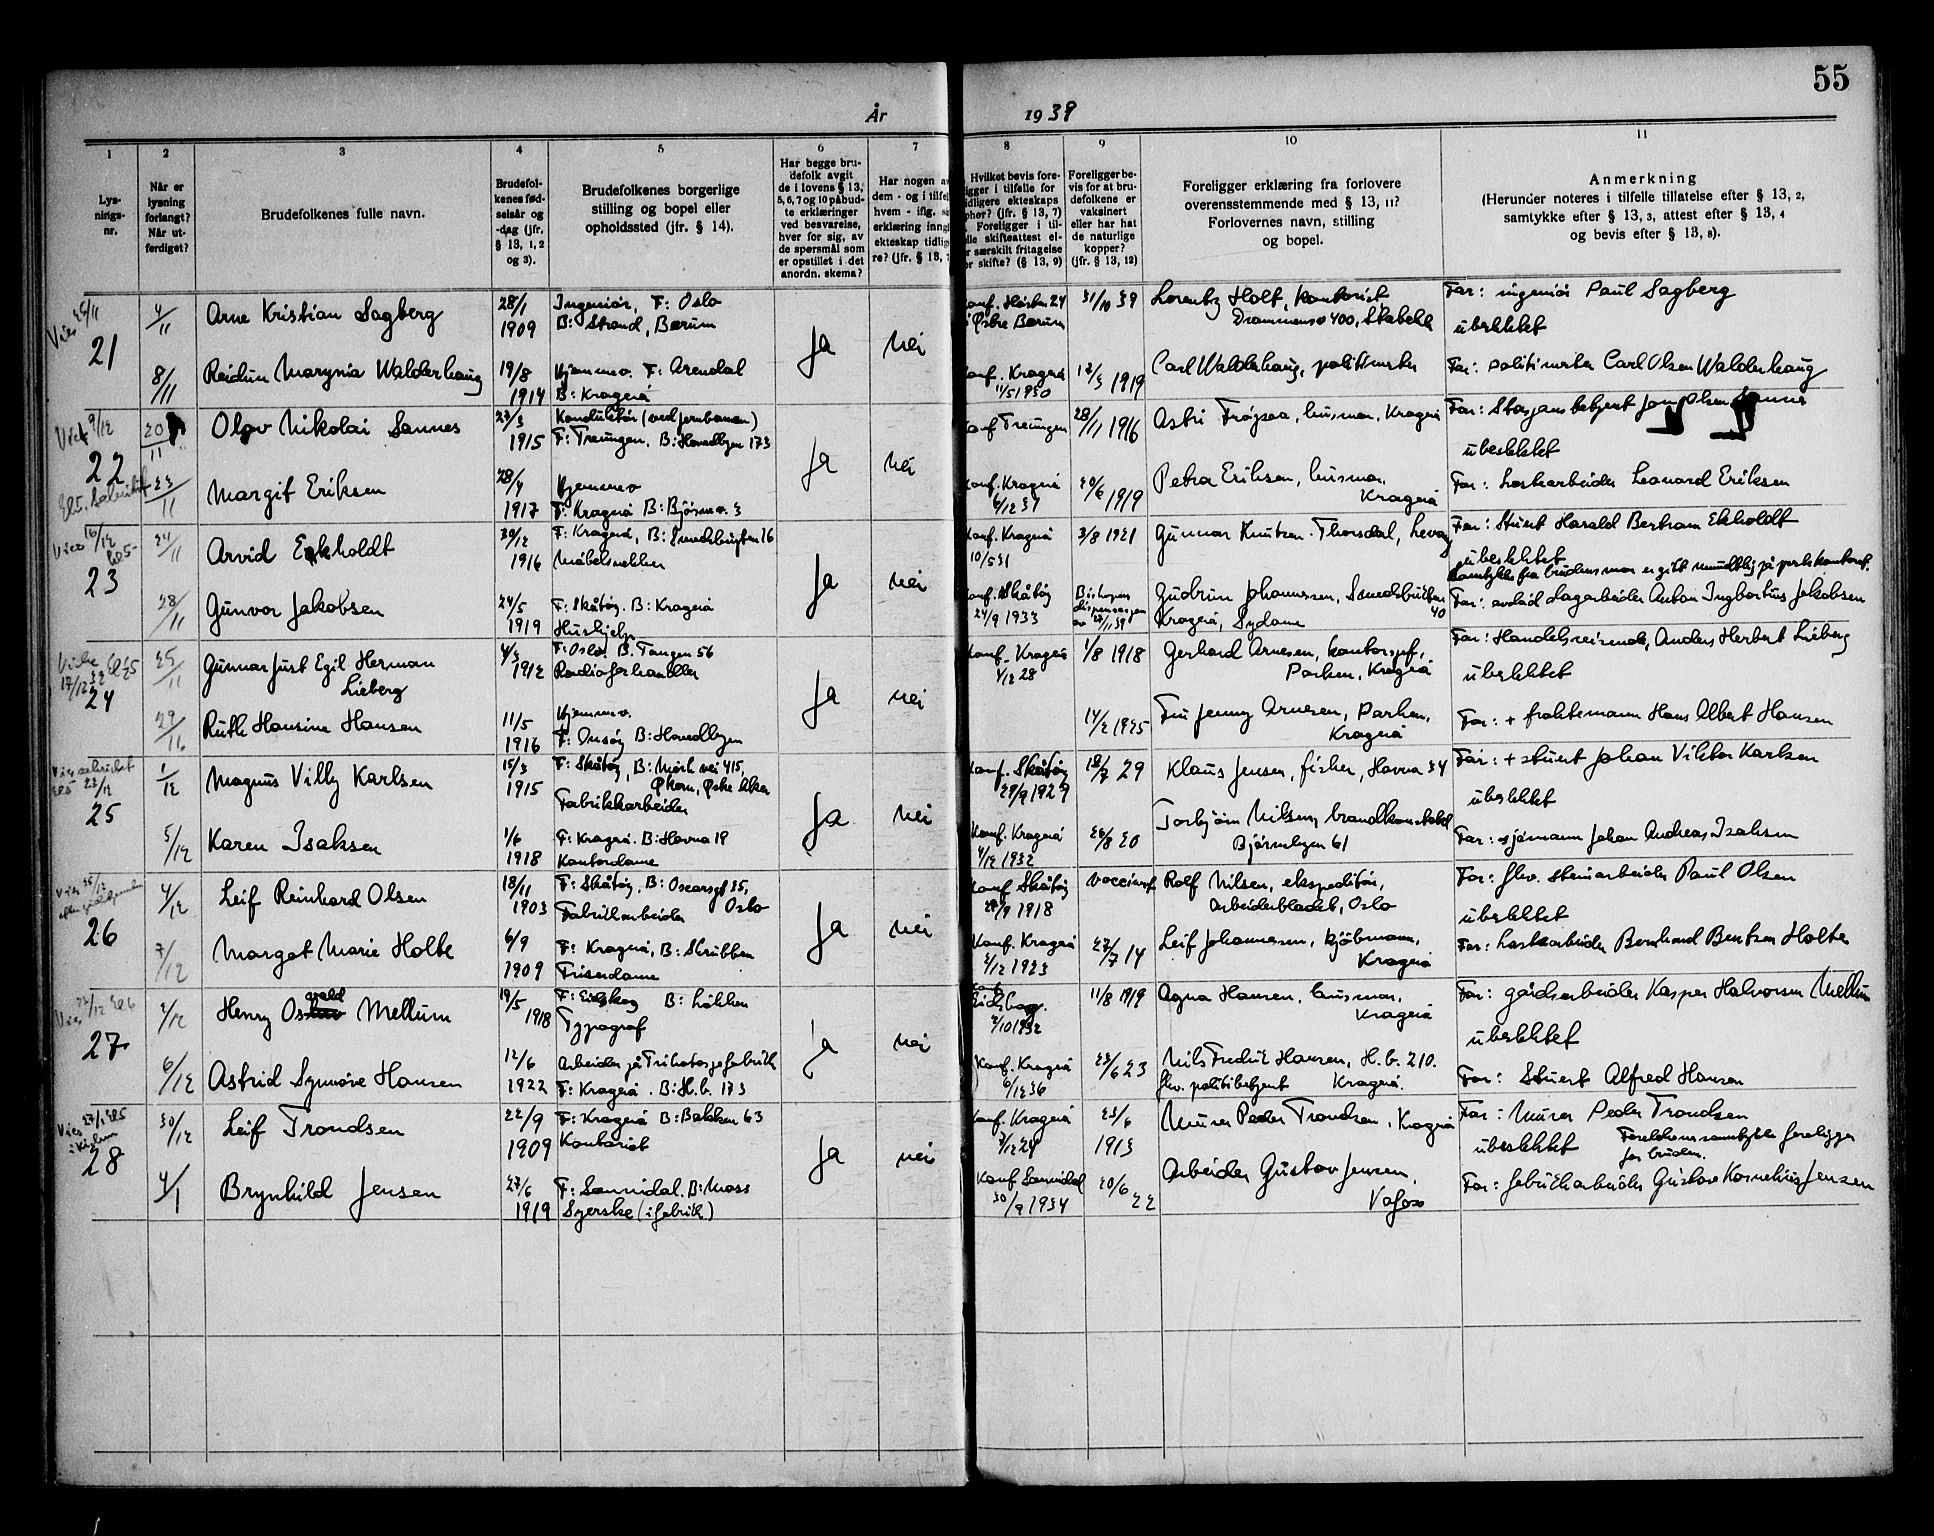 55
År 1939
1
2
3
4
5
6
7
8
9
10
11
Lys-
nings-
nr.
Når er
lysning
forlangt?
Når ut-
ferdiget?
Brudefolkenes fulle navn.
Brudefol-
kenes fød-
selsår og
-dag (jfr.
§ 13, 1, 2
og 3).
Brudefolkenes borgerlige
stilling og bopel eller
opholdssted (jfr. § 14).
Har begge bru-
defolk avgit
de i lovens § 13,
5, 6, 7 og 10 påbud-
te erklæringer
ved besvarelse,
hver for sig, av
de spørsmål som
er opstillet i det
anordn. skema?
Har nogen av
dem - og i tilfel
hvem - iflg. si
erklæring inng
ekteskap tidlig
re? (jfr. § 13,
Hvilket bevis fore-
igger i tilfelle for
idligere ekteskaps
phør? (jfr. § 13, 7)
Foreligger i til-
lle skifteattest el-
r særskilt fritagelse
r skifte? (§ 13, 9)
Foreligger be-
vis for at bru-
defolkene er
vaksinert
eller har hat
de naturlige
kopper?
(jfr. § 13, 12)
Foreligger erklæring fra forlovere
overensstemmende med § 13, 11?
Forlovernes navn, stilling
og bopel.
Anmerkning
(Herunder noteres i tilfelle tillatelse efter § 13, 2,
samtykke efter § 13, 3, attest efter § 13, 4
og bevis efter § 13, 8).
Viet 25/11
21
4/11
Arne Kristian Sagberg
28/1
1909
Ingeniør, F: Oslo
B: Strand, Bærum
Ja
nei
Konf. Høsten 24
i Østre Bærum
31/10 39
Lorentz Holt, kontorist
Drammensv 400, Stabekk
Far: ingeniør Paul Sagberg
ubeslektet
8/11
Reidun Marynia Walderhaug
19/8
1914
Hjemmev. F: Arendal
B: Kragerø
Konf. Kragerø
11/5 1930
1919
Carl Walderhaug, politimester
Far: politimester Carl Olsen Walderhaug
Viet 9/12
22
20/11
Olav Nikolai Sannes
23/3
1915
Konduktør (ved jernbanen)
F: Treungen. B: Hovedbyen 173
Ja
nei
Konf Treungen
28/11 1916
Astri Frøysaa, husmor, Kragerø
Far: Stasjonsbetjent Jon Olsen Sannes
ubeslektet
23/11
Margit Eriksen
28/4
1917
Hjemmev
F: Kragerø B: Bjørnev. 3
Konf. Kragerø
4/12 31
20/6 1919
Petra Eriksen, husmor,
Kragerø
Far: Losearbeider Leonard Eriksen
Viet 16/12
23
24/11
Arvid Ekholdt
30/12
1916
F: Kragerø, B: Smedsbugten 16
Møbelsnekker
Ja
nei
Konf. Kragerø
10/5 31
3/8 1921
Gunnar Knutsen. Thorsdal, Levang
Far: Stuert Harald Bertram Ekholdt
ubeslektet
Samtykke fra brudens mor er gitt muntlig på prestekontoret.
28/11
Gunvor Jakobsen
24/5
1919
F: Skåtøy. B: Kragerø
Hushjelp
Konf. Skåtøy
24/9 1933
Bispens
dispensasjon
av 27/11 39
Gudrun Johannessen, Smedsbukten
40
Kragerø, Sydame
Far: avdød Lagerbeider Anton Ingbertus Jakobsen
24
25/11
Gunnar Just Egil Herman
Lieberg
4/3
1912
F: Oslo. B. Tangen 56
Radioforhandler
Ja
nei
Konf. Kragerø
1/12 28
1/8 1918
Gerhard Arnesen, kontorsjef,
Parken, Kragerø
Far: Handelsreisende, Anders Herbert Lieberg
ubeslektet
29/11
Ruth Hansine Hansen
11/5
1916
Hjemmev.
F: Onsøy B: Hovedbyen
14/2 1925
Fru Jenny Arnesen, Parken,
Kragerø
Far: + fraktemann Hans Albert Hansen
25
1/12
Magnus Villy Karlsen
15/3
1915
F: Skåtøy, B: Mørk vei 415,
Økern, Østre Aker
Fabrikkarbeider
Ja
nei
Konf. Skåtøy
29/9 1929
18/7 29
Klaus Jensen, fisker, Havna 34
Far: + stuert Johan Viktor Karlsen
ubeslektet
5/12
Karen Isaksen
1/6
1918
F: Kragerø. B: Havna 19
Kontordame
Konf. Kragerø
4/12 1932
26/8 20
Torbjørn Nilsen, brandkonstabel
Bjørnebyen 61
Far: sjømann Johan Andreas Isaksen
26
4/12
Leif Reinhard Olsen
18/11
1903
F: Skåtøy, B: Oscarsgt 35,
Oslo
Fabrikarbeider
Ja
nei
Konf Skåtøy
29/9 1918
Rolf Nilsen, ekspeditør,
Arbeiderbladet, Oslo
Far: fhv. stenarbeider Paul Olsen
ubeslektet
7/12
Margot Marie Holte
6/9
1909
F: Kragerø, B: Skrubben
Friserdame
Konf. Kragerø
2/12 1923
27/7 14
Leif Johannesen, kjøbmann,
Kragerø
Far: Losearbeider Bernhard Bentsen Holte
27
4/12
Henry Osvald Mellum
19/5
1918
F: Eidskog B: Løkken
Typograf
Ja
nei
Konf
Eidskog.
2/10 1932
11/8 1919
Agna Hansen, husmor,
Kragerø
Far: gårdsarbeider Kasper Halvorsen Mellum
ubeslektet
6/12
Astrid Synnøve Hansen
12/6
1922
Arbeider på Trikotasjefabrik
F: Kragerø. B: H.b. 173
Konf. Kragerø
6/12 36
23/6 23
Nils Fredrik Hansen, H.b. 210.
fhv. politibetjent Kragerø.
Far: Stuert Alfred Hansen
28
30/12
Leif Trondsen
22/9
1909
F: Kragerø B: Bakken 63
Kontorist
Ja
nei
Konf. Kragerø
7/12 24
23/6
1913
Murer Peder Trondsen, Kragerø
Far: Murer Peder Trondsen
ubeslektet
Foreldrenes samtykke foreligger
for bruden.
4/1
Brynhild Jensen
27/6
1919
F: Sannidal. B: Moss
Syerske (i fabrik)
Konf Sannidal
30/9 1934
20/6
22
Arbeider Gustav Jensen,
Vafoss
Far: fabrikarbeider Gustav Kornelius Jensen